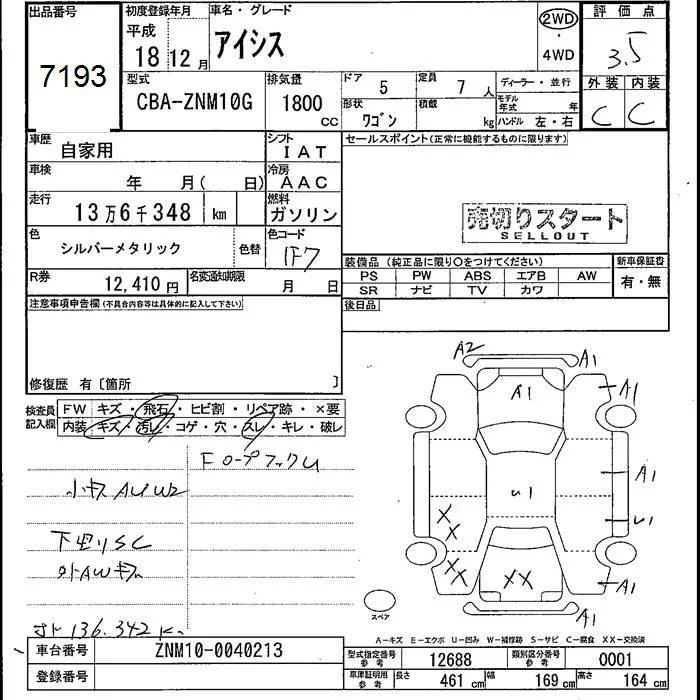 出品番号
7193
初度登録年月
平成
18 12 月
車名・グレード
アイシス
2WD
・
4WD
評価点
3.5
外装 内装
C C
型式
CBA-ZNM10G
排気量
1800
CC
ドア 5
定員 7 人
ディーラー・並行
形状 ワゴン
積載 kg
モデル年式 年
ハンドル 左・右
車歴
自家用
シフト
IAT
車検
年 月( 日)
冷房
AAC
走行
13万6千348 km
燃料
ガソリン
色
シルバーメタリック
色替
色コード
1F7
R券
12,410円
名変通知期限
月 日
セールスポイント(正常に機能するものに限ります)
売切りスタート
SELLOUT
装備品(純正品に限り○をつけてください)
PS PW ABS エアB AW
SR ナビ TV カワ
新車保証書
有・無
後日品
注意事項申告欄(不具合内容等は具体的に記入して下さい)
修復歴 有〔箇所 〕
検査員
記入欄
FW キズ・飛石・ヒビ割・リペア跡・×要
内装 キズ・汚レ・コゲ・穴・スレ・キレ・破レ
小キズ AU W2
下廻りSC
外AWキズ
136,342 K
A2 A1
A1 A1
A1
U1
U1
X
X
X
X
XX
A1
A1
スペア
A-キズ E-エクボ U-凹み W-補修跡 S-サビ C-腐食 XX-交換済
車台番号
ZNM10-0040213
登録番号
型式指定番号
参考
12688
類別区分番号
参考
0001
車庫証明用
参考
長さ 461 cm
幅 169 cm
高さ 164 cm